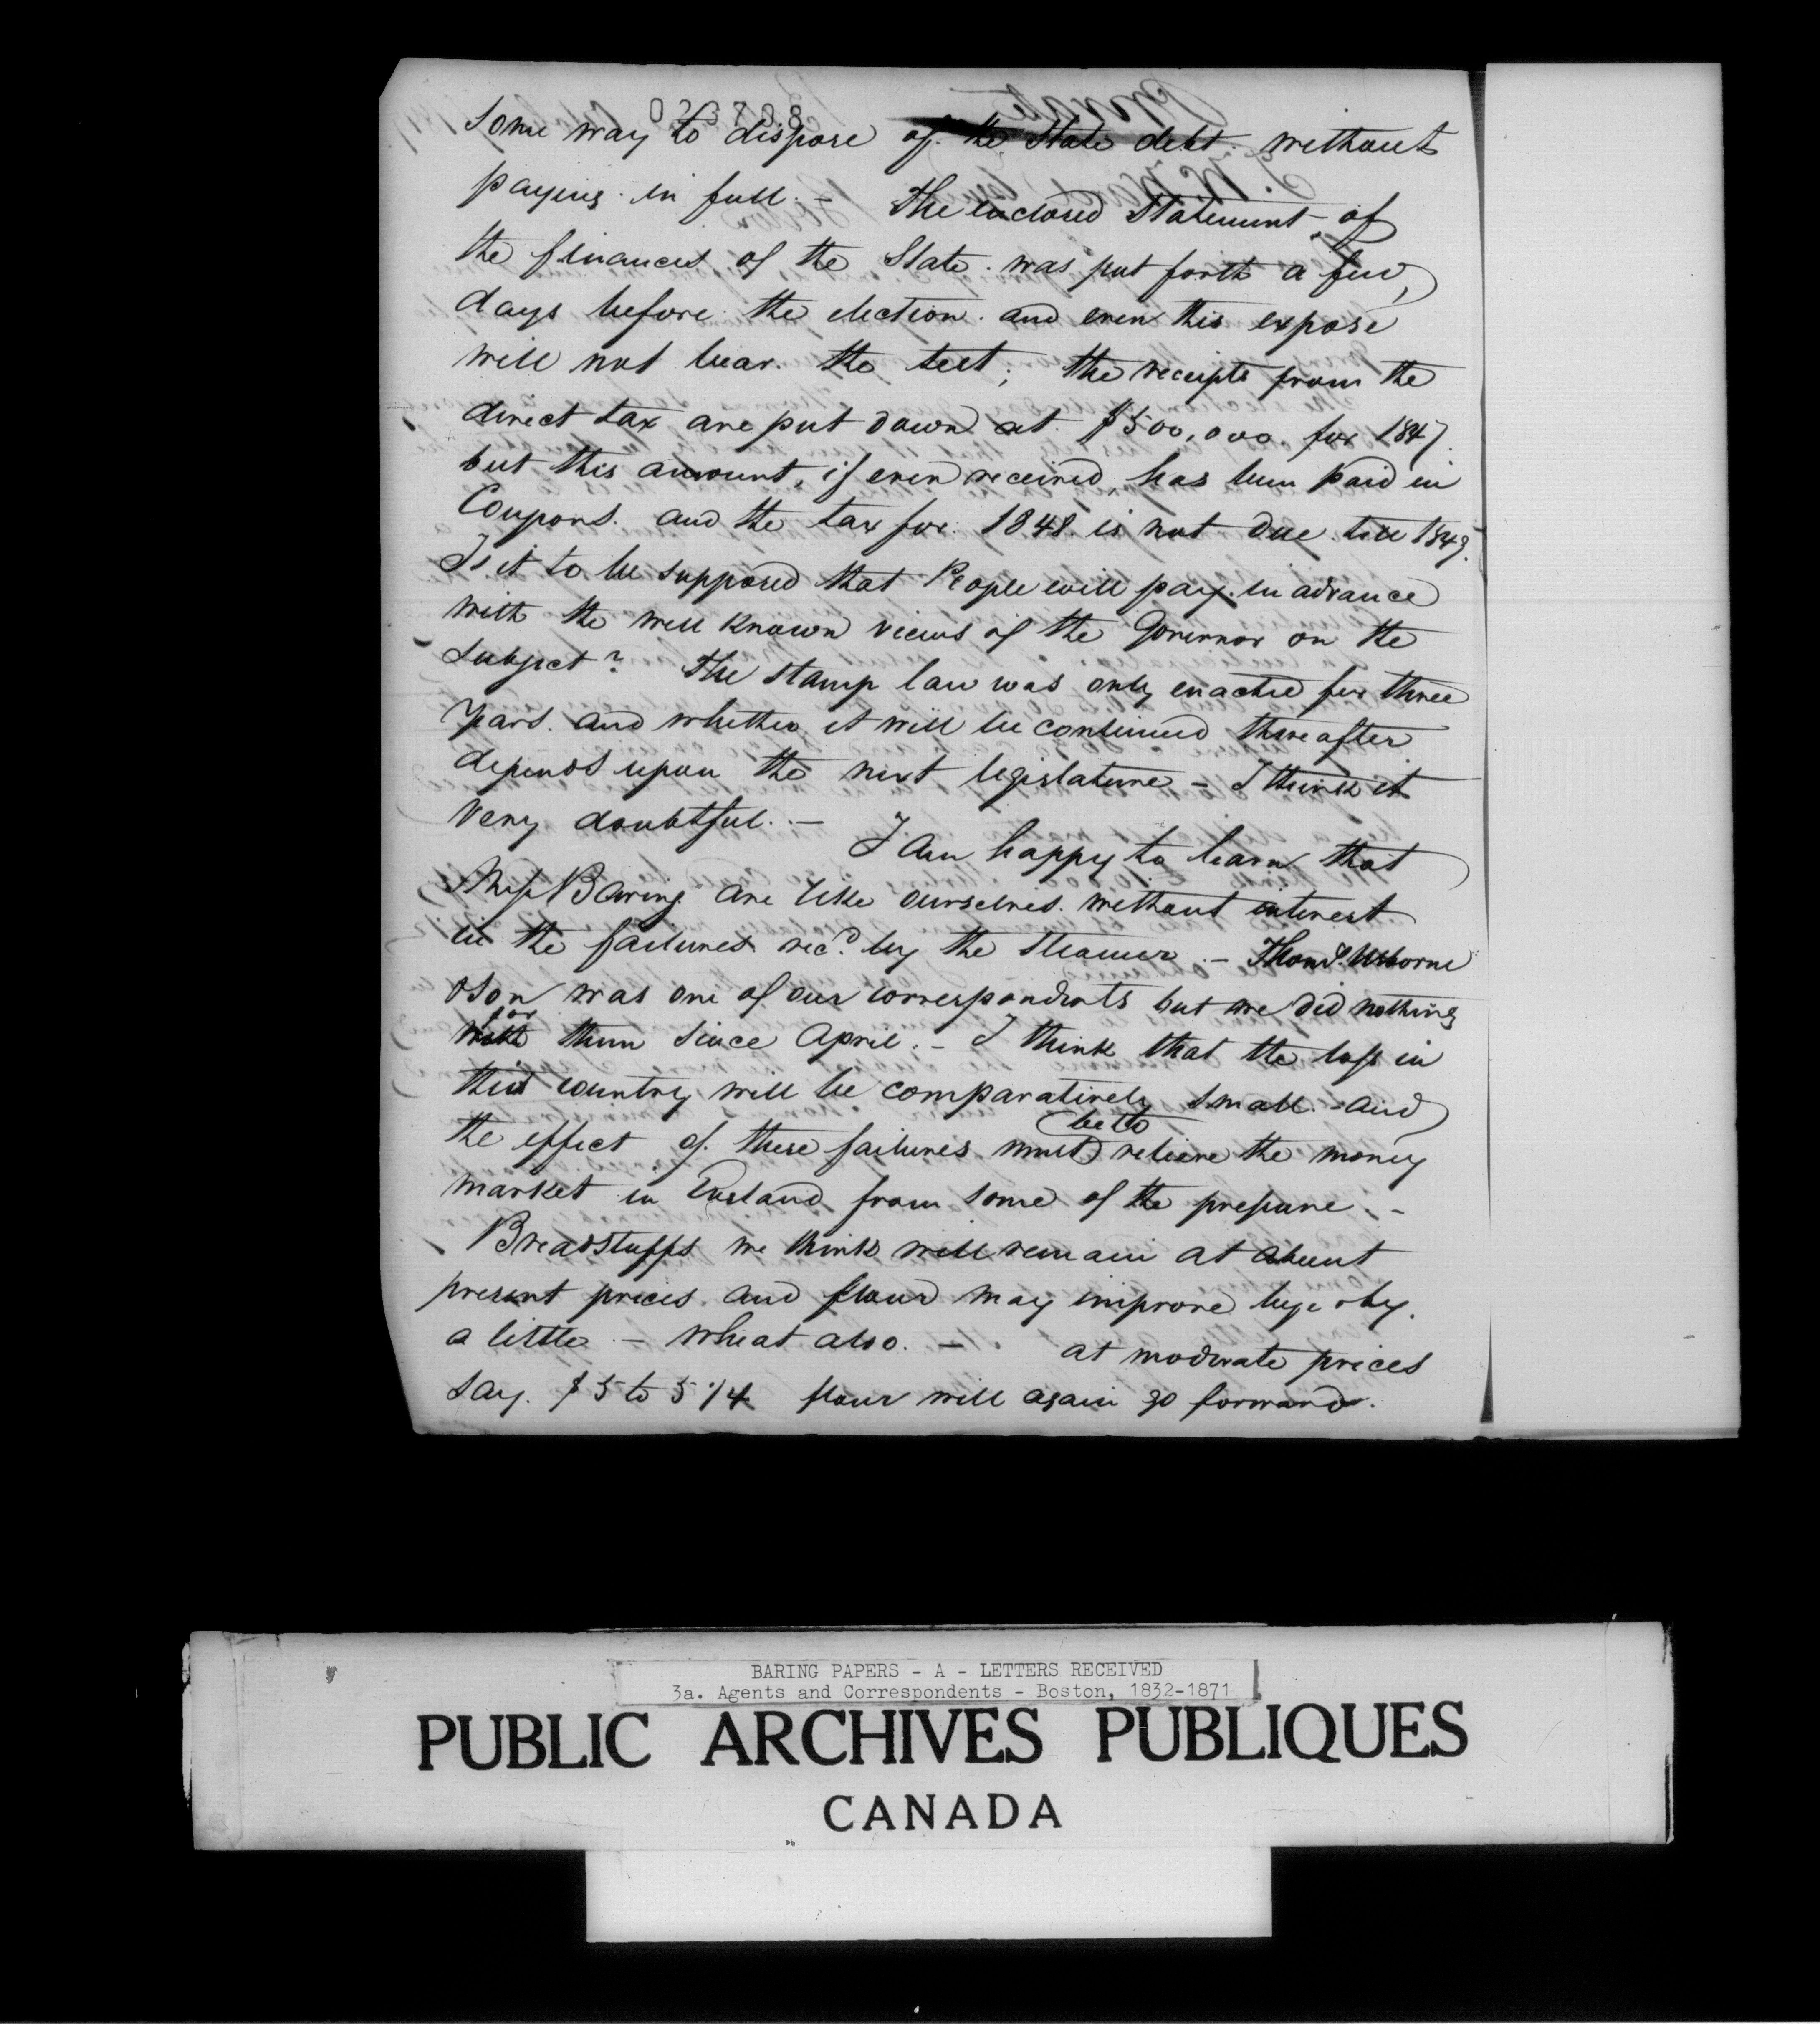 023708
some way to dispose of the State debt without
paying in full. - The enclosed Statement of
the finances of the State was put forth a few
days before the election and even this exposé
will not bear the test; the receipts from the
direct tax are put down at $500,000 for 1847.
but this amount, if even received, has been paid in
Coupons. and the tax for 1848 is not due till 1849.
Is it to be supposed that People will pay in advance
with the well known views of the Governor on the
subject? The Stamp law was only enacted for three
years and whether it will be continued thereafter
depends upon the next legislature - I think it
very doubtful. -
I am happy to learn that
Mess Baring are like ourselves without interest
in the failures recd. by the Steamer. - Usborne
& Son was one of our correspondents but we did nothing
for
with them since April. - I think that the loss in
this country will be comparatively small - and
be to
the effect of these failures must relieve the money
market in England from some of the pressure. -
Breadstuffs we think will remain at about
present prices and flour may improve
a little - wheat also. - at moderate prices
say $5 to 5 1/4 flour will again go forward.
BARING PAPERS - A - LETTERS RECEIVED
3a. Agents and Correspondents - Boston, 1832-1871
PUBLIC ARCHIVES PUBLIQUES
CANADA